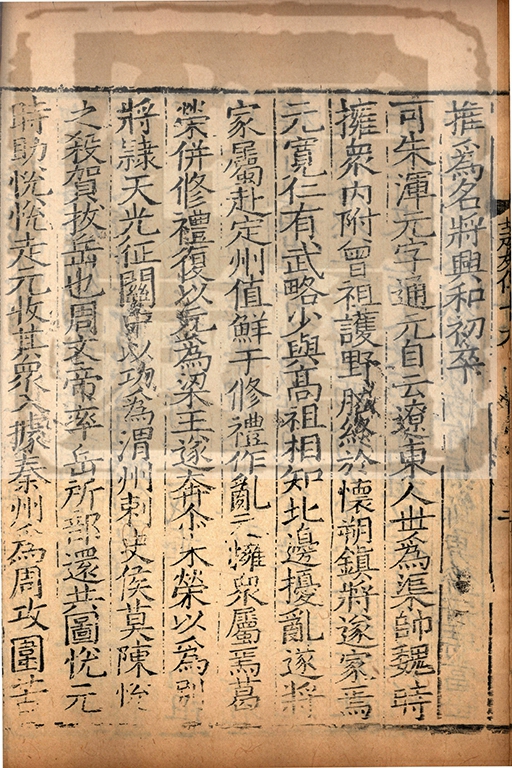 推為名將興和初卒
可朱渾元字通元自云遼東人世為渠帥魏時
擁衆內附曾祖護野肱終於懷朔鎮將遂家焉
元寬仁有武略少與高祖相知北邊擾亂遂將
家屬赴定州值鮮于修禮作亂元擁衆屬焉葛
榮併修禮復以元為梁王遂奔尒朱榮以為別
將隷天光征關中以功為渭州刺史侯莫陳悅
之殺賀拔岳也周文帝率岳所部還共圖悅元
時助悅悅走元收其衆入據秦州為周攻圍苦